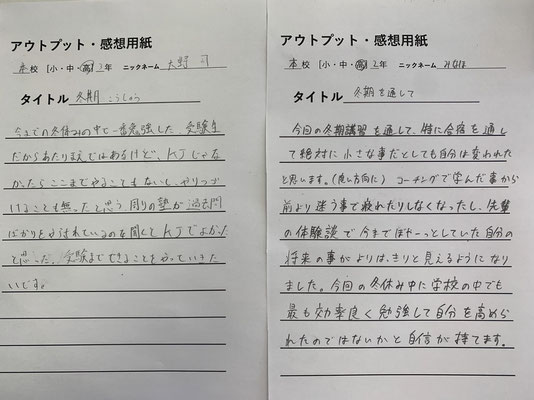 アウトプット・感想用紙
本校 [小・中・高] 3年 ニックネーム 大野
タイトル 冬期こうしゅう
今までの冬休みの中で一番勉強した。受験生
だからあたりまえではあるけど、KJじゃな
かったらここまでやることもないし、やりつづ
けることも無ったと思う。周りの塾が過去問
ばかりをやっているのを聞くとKJでよかった
と思った。受験までできることをやっていきた
いです。
アウトプット・感想用紙
本校 [小・中・高] 2年 ニックネーム みなほ
タイトル 冬期を通して
今回の冬期講習を通して、特に合宿を通し
て絶対に小さな事だとしても自分は変われた
と思います。(良い方向に) コーチングで学んだ事から
前より違う事で疲れたりしなくなったし、先輩
の体験談で今までぼやーっとしていた自分の
将来の事がよりはっきりと見えるようになり
ました。今回の冬休み中に学校の中でも
最も効率良く勉強して自分を高めら
れたのではないかと自信が持てます。